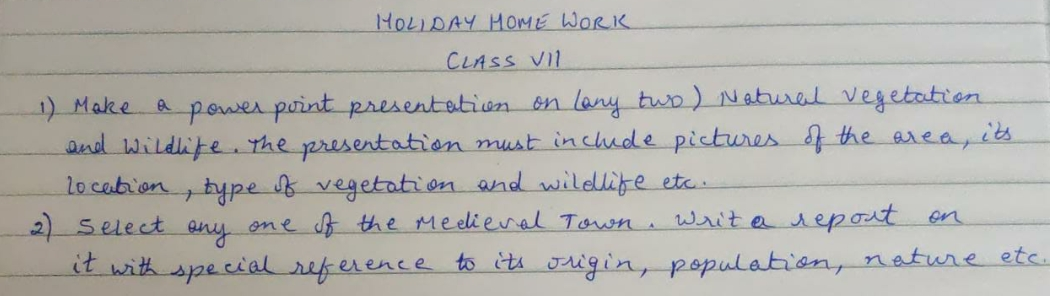 HOLIDAY HOME WORK
CLASS VII
1) Make a power point presentation on (any two) Natural vegetation
and Wildlife. The presentation must include pictures of the area, its
location, type of vegetation and wildlife etc.
2) Select any one of the Medieval Town. Write a report on
it with special reference to its origin, population, nature etc.